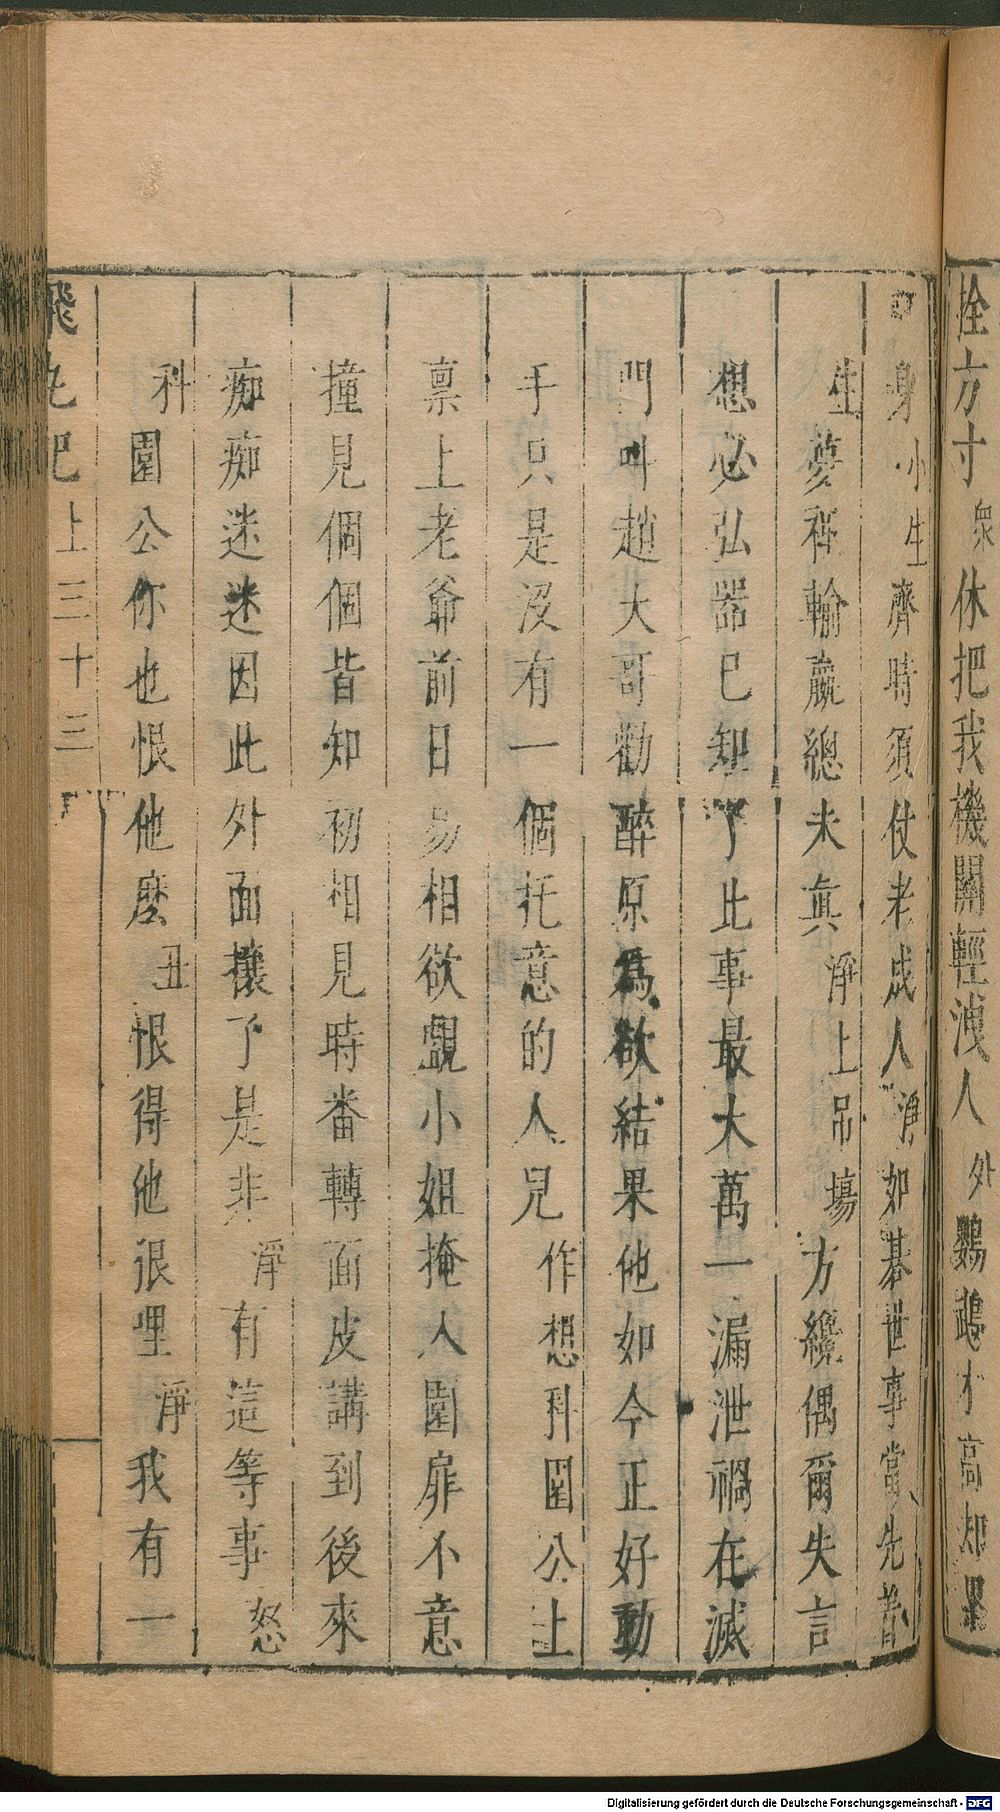 拴方寸衆休把我機關輕洩人外鸚鵡才高却
身小生濟時須仗老成人淨如棊世事當先
生夢裡輸贏總未真淨上吊塲方纔偶爾失言
想必弘器已知了此事最大萬一漏泄禍在滅
門叫趙大哥勸醉原爲欲結果他如今正好動
手只是沒有一個托意的人兒作想科園公上
禀上老爺前日易相欲覷小姐掩入園扉不意
撞見個個皆知初相見時番轉面皮講到後來
痴痴迷迷因此外面攘了是非淨有這等事怒
科園公你也恨他麽丑恨得他很哩淨我有一
飛丸記上三十三
Digitalisierung gefördert durch die Deutsche Forschungsgemeinschaft - DFG